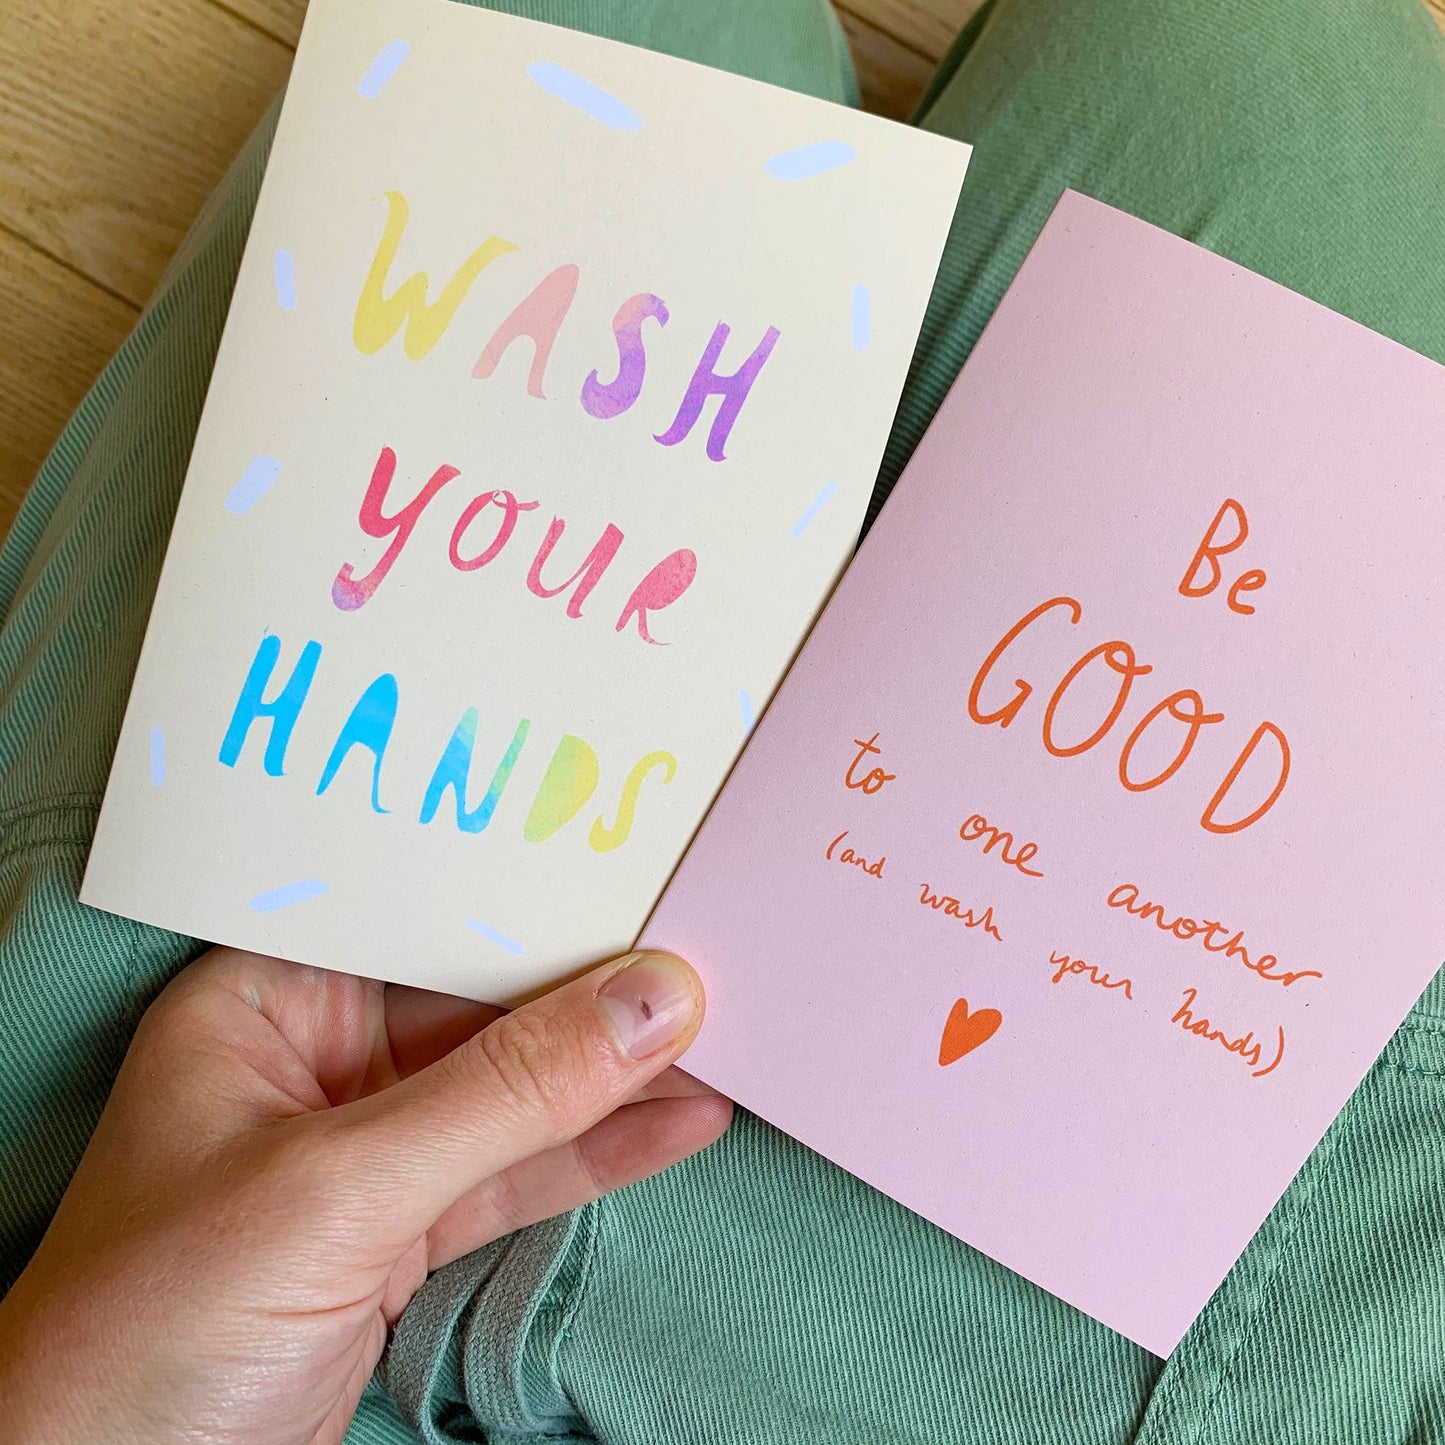 WASH
YOUR
HANDS
Be
GOOD
to one another
(and wash your hands)